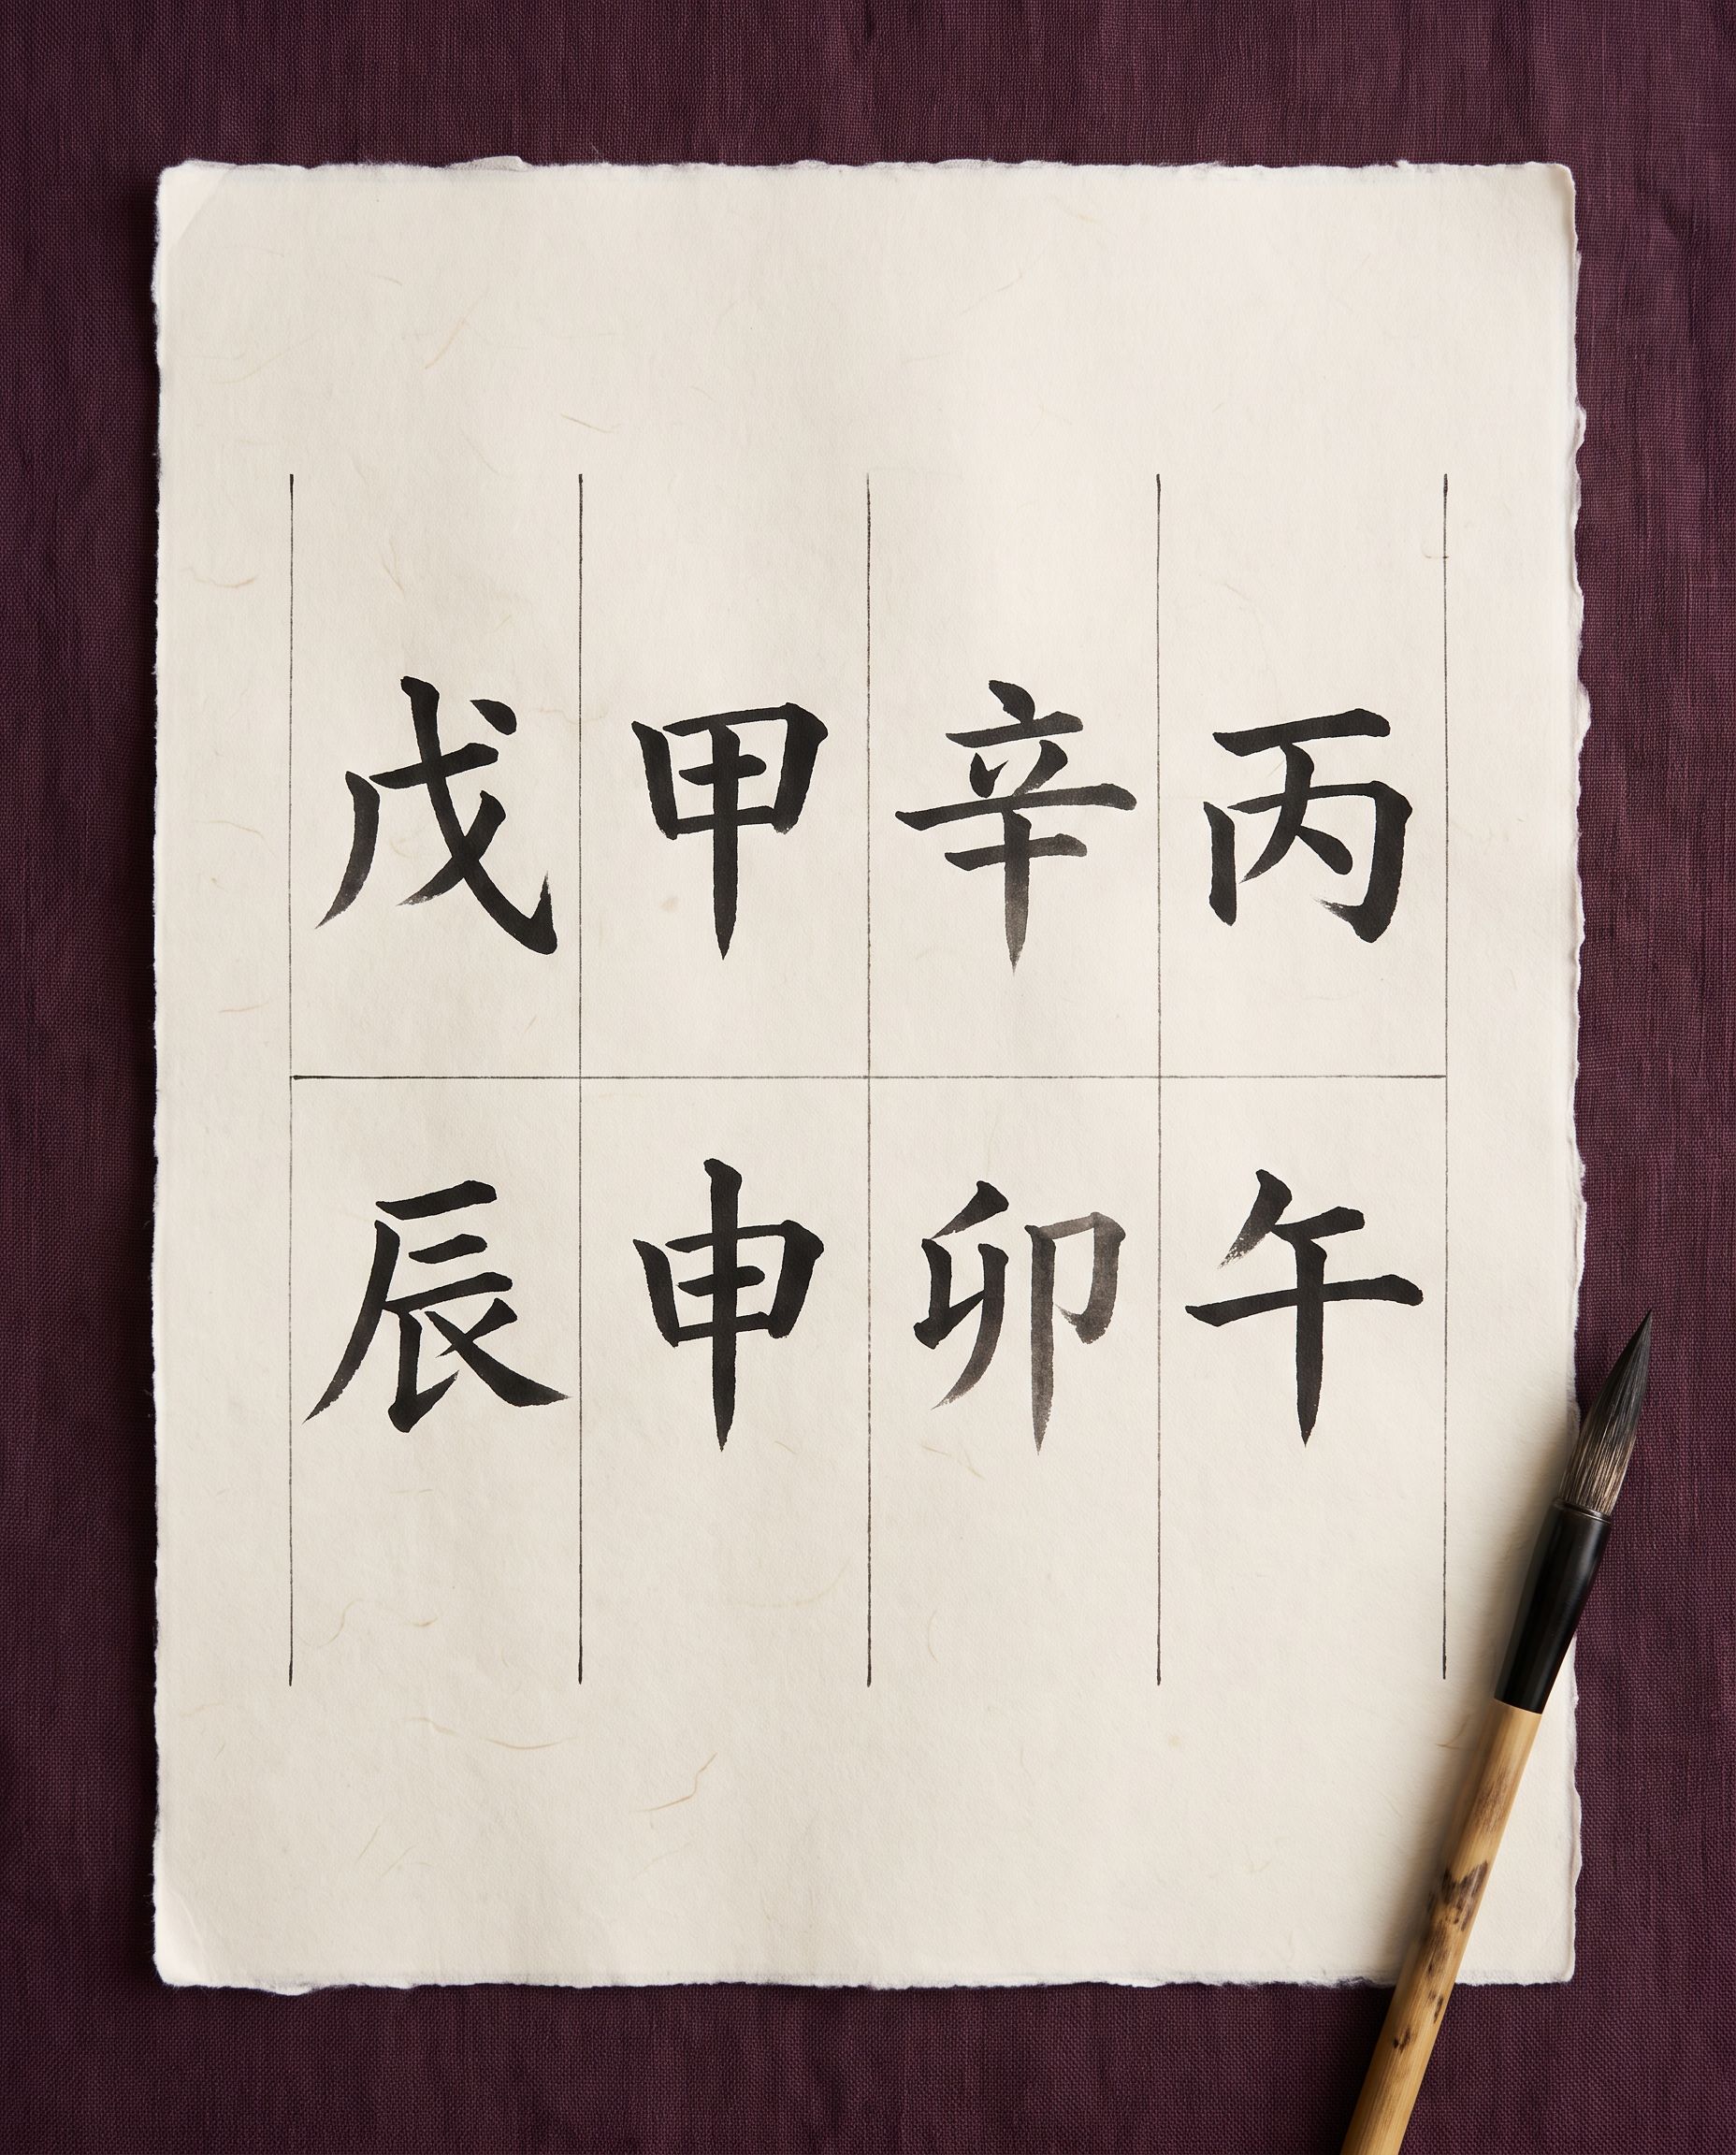 戊 甲 辛 丙
辰 申 卯 午